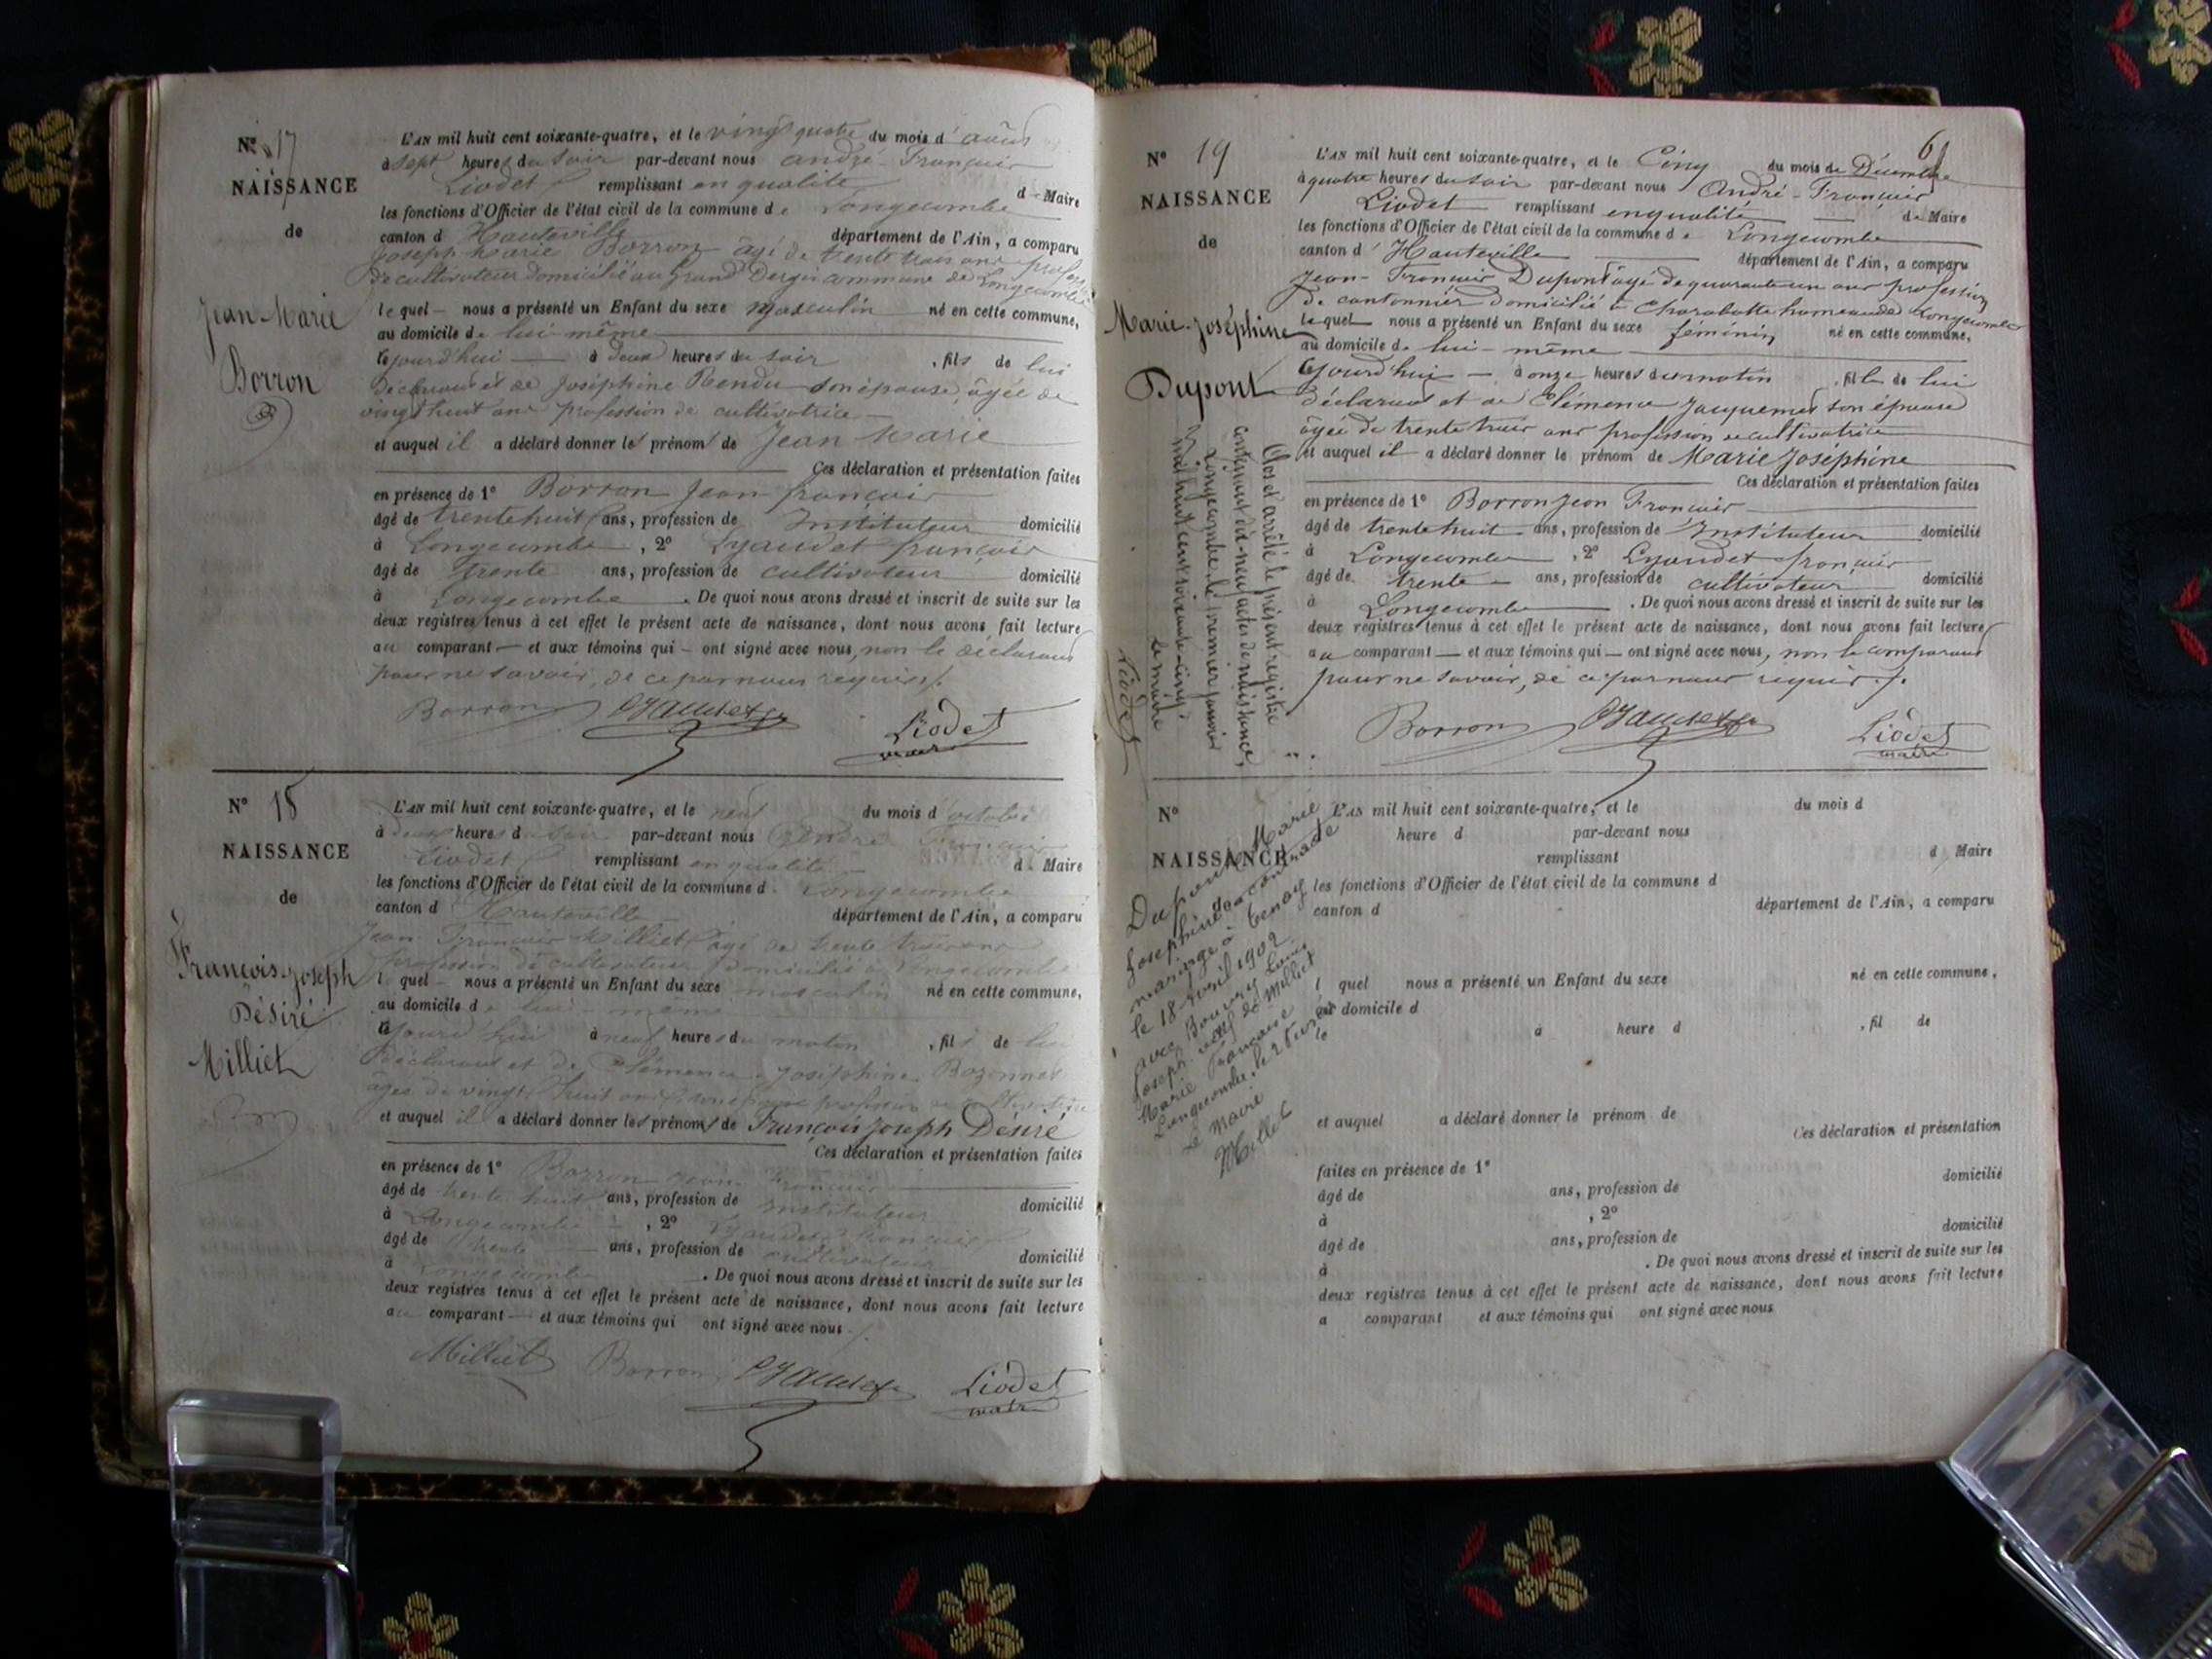 N° 17
NAISSANCE
de
Jean-Marie
Borron
L'AN mil huit cent soixante-quatre, et le vingt quatre du mois d'août
à sept heures du soir par-devant nous andré-François
Liodet remplissant en qualité de Maire
les fonctions d'Officier de l'état civil de la commune de Longecombe
canton d'Hauteville département de l'Ain, a comparu
Joseph Marie Borron âgé de trente trois ans profession
de cultivateur domicilié au Grand Dergis commune de Longecombe
lequel nous a présenté un Enfant du sexe masculin né en cette commune,
au domicile de lui même
cejourd'hui à deux heures du soir, fils de lui
déclarant et de Joséphine Rendu son épouse, âgée de
vingt huit ans profession de cultivatrice
et auquel il a déclaré donner les prénoms de Jean Marie
Ces déclaration et présentation faites
en présence de 1° Borron Jean françois
âgé de trente huit ans, profession de Instituteur domicilié
à Longecombe, 2° Lyaudet françois
âgé de trente ans, profession de cultivateur domicilié
à Longecombe. De quoi nous avons dressé et inscrit de suite sur les
deux registres tenus à cet effet le présent acte de naissance, dont nous avons fait lecture
au comparant et aux témoins qui ont signé avec nous, non le déclarant
pour ne savoir, de ce par nous requis.
Borron Lyaudet Liodet
maire
N° 18
NAISSANCE
de
François-Joseph
Désiré
Milliet
L'AN mil huit cent soixante-quatre, et le neuf du mois d'octobre
à deux heures du soir par-devant nous André François
Liodet remplissant en qualité de Maire
les fonctions d'Officier de l'état civil de la commune de Longecombe
canton d'Hauteville département de l'Ain, a comparu
Jean François Milliet âgé de trente trois ans
profession de cultivateur domicilié à Longecombe
lequel nous a présenté un Enfant du sexe masculin né en cette commune,
au domicile de lui-même
cejourd'hui à neuf heures du matin, fils de lui
déclarant et de Clémence Joséphine Bozonnet
âgée de vingt huit ans son épouse profession de cultivatrice
et auquel il a déclaré donner les prénoms de François Joseph Désiré
Ces déclaration et présentation faites
en présence de 1° Borron Jean François
âgé de trente huit ans, profession de Instituteur domicilié
à Longecombe, 2° Lyaudet françois
âgé de trente ans, profession de cultivateur domicilié
à Longecombe. De quoi nous avons dressé et inscrit de suite sur les
deux registres tenus à cet effet le présent acte de naissance, dont nous avons fait lecture
au comparant et aux témoins qui ont signé avec nous
Milliet Borron Lyaudet Liodet
maire
61
N° 19
NAISSANCE
de
Marie-Joséphine
Dupont
L'AN mil huit cent soixante-quatre, et le Cinq du mois de Décembre
à quatre heures du soir par-devant nous André-François
Liodet remplissant en qualité de Maire
les fonctions d'Officier de l'état civil de la commune de Longecombe
canton d'Hauteville département de l'Ain, a comparu
Jean-François Dupont âgé de quarante un ans profession
de cantonnier domicilié à Charabotte hameau de Longecombe
lequel nous a présenté un Enfant du sexe féminin né en cette commune,
au domicile de lui-même
Cejourd'hui à onze heures du matin, fille de lui
déclarant et de Clémence Jacquemet son épouse
âgée de trente trois ans profession de cultivatrice
et auquel il a déclaré donner le prénom de Marie Joséphine
Ces déclaration et présentation faites
en présence de 1° Borron Jean François
âgé de trente huit ans, profession de Instituteur domicilié
à Longecombe, 2° Lyaudet françois
âgé de trente ans, profession de cultivateur domicilié
à Longecombe. De quoi nous avons dressé et inscrit de suite sur les
deux registres tenus à cet effet le présent acte de naissance, dont nous avons fait lecture
au comparant et aux témoins qui ont signé avec nous, non le comparant
pour ne savoir, de ce par nous requis.
Borron Lyaudet Liodet
maire
Clos et arrêté le présent registre
contenant dix-neuf actes de naissance,
Longecombe le premier janvier
mil huit cent soixante-cinq.
Le maire
Liodet
N°
NAISSANCE
Dupont Marie
Joséphine a contracté
mariage à Tenay
le 18 avril 1902
avec Bouvry Louis
Joseph veuf de Milliet
Marie Françoise
Longecombe, le
Le Maire
Milliet
L'AN mil huit cent soixante-quatre, et le du mois d
heure d par-devant nous
remplissant d Maire
les fonctions d'Officier de l'état civil de la commune d
canton d département de l'Ain, a comparu
l quel nous a présenté un Enfant du sexe né en cette commune,
au domicile d
le à heure d, fil de
et auquel a déclaré donner le prénom de
Ces déclaration et présentation
faites en présence de 1°
âgé de ans, profession de domicilié
à , 2°
âgé de ans, profession de domicilié
à . De quoi nous avons dressé et inscrit de suite sur les
deux registres tenus à cet effet le présent acte de naissance, dont nous avons fait lecture
a comparant et aux témoins qui ont signé avec nous